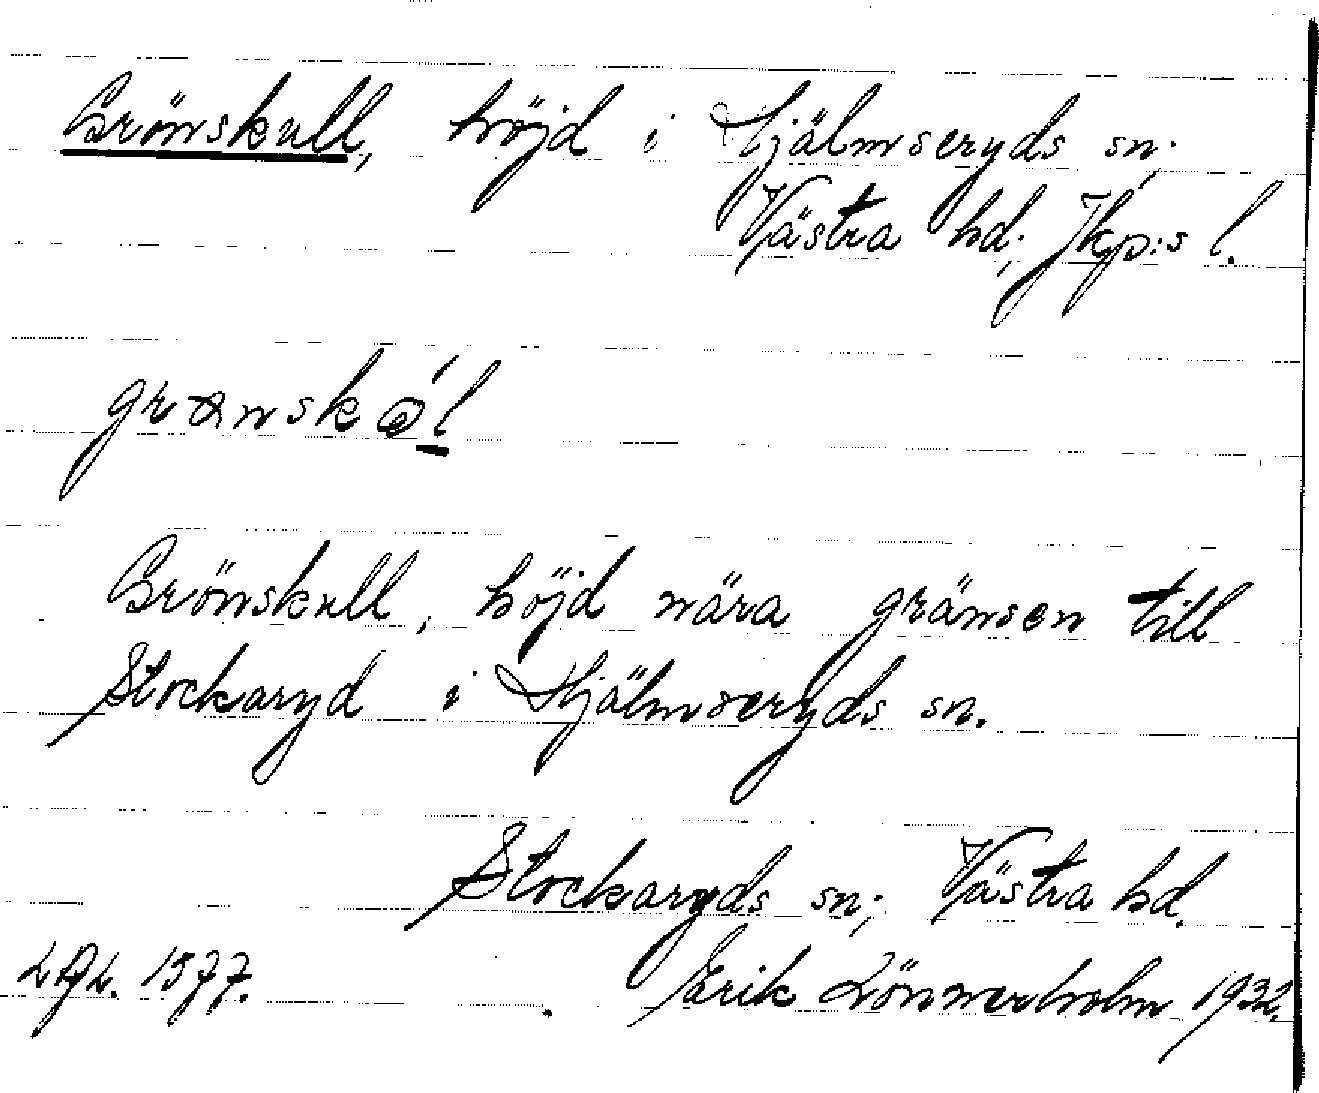 Grönskull, höjd i Hjälmseryds sn;
Västra hd; Jkp:s l.
Grönskull, höjd nära gränsen till
Stockaryd i Hjälmseryds sn.
Stockaryds sn; Västra hd.
1577. Erik Lönnerholm 1932.